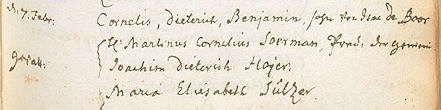 d. 7. Febr. Cornelis, Dieterich, Benjamin, Sohn von Isac de Boor
H. Martinus Cornelius Soerman, Pred. der gemein
gevatt. Joachim Dieterich Mojer.
Maria Elisabeth Sültzer.